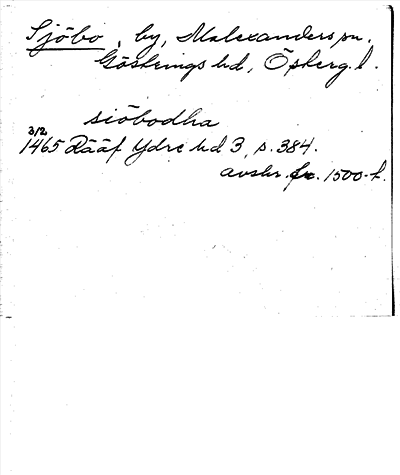 Sjöbo, by, Malexanders sn.
Göstrings hd, Östergl.
siöbodha
3/2
1465 Rääf Ydre hd 3, s. 384.
avskr. fr. 1500-t.